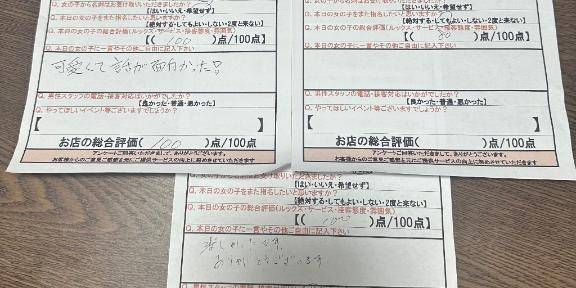 Q. 女の子から名刺はお受け取りいただきましたか?
【はい・いいえ・希望せず】
Q. 本日の女の子をまた指名したいと思いますか?
【絶対する・してもよい・しない・2度と来ない】
Q. 本日の女の子の総合評価(ルックス・サービス・接客態度・雰囲気)
【( 100 )点/100点】
Q. 本日の女の子に一言やその他ご自由に記入下さい
可愛くて話が面白かった!
Q. 男性スタッフの電話・接客対応はいかがでしたか?
【良かった・普通・悪かった】
Q. やってほしいイベント等ございますでしょうか?
【 】
お店の総合評価( 100 )点/100点
アンケートご回答いただきまして、ありがとうございます。
【はい・いいえ・希望せず】
Q. 本日の女の子をまた指名したいと思いますか?
【絶対する・してもよい・しない・2度と来ない】
Q. 本日の女の子の総合評価(ルックス・サービス・接客態度・雰囲気)
【( 80 )点/100点】
Q. 本日の女の子に一言やその他ご自由に記入下さい
Q. 男性スタッフの電話・接客対応はいかがでしたか?
【良かった・普通・悪かった】
Q. やってほしいイベント等ございますでしょうか?
【 】
お店の総合評価( )点/100点
アンケートご回答いただきまして、ありがとうございます。
【はい・いいえ・希望せず】
Q. 本日の女の子をまた指名したいと思いますか?
【絶対する・してもよい・しない・2度と来ない】
Q. 本日の女の子の総合評価(ルックス・サービス・接客態度・雰囲気)
【( 100 )点/100点】
Q. 本日の女の子に一言やその他ご自由に記入下さい
楽しかったです
ありがとうございます